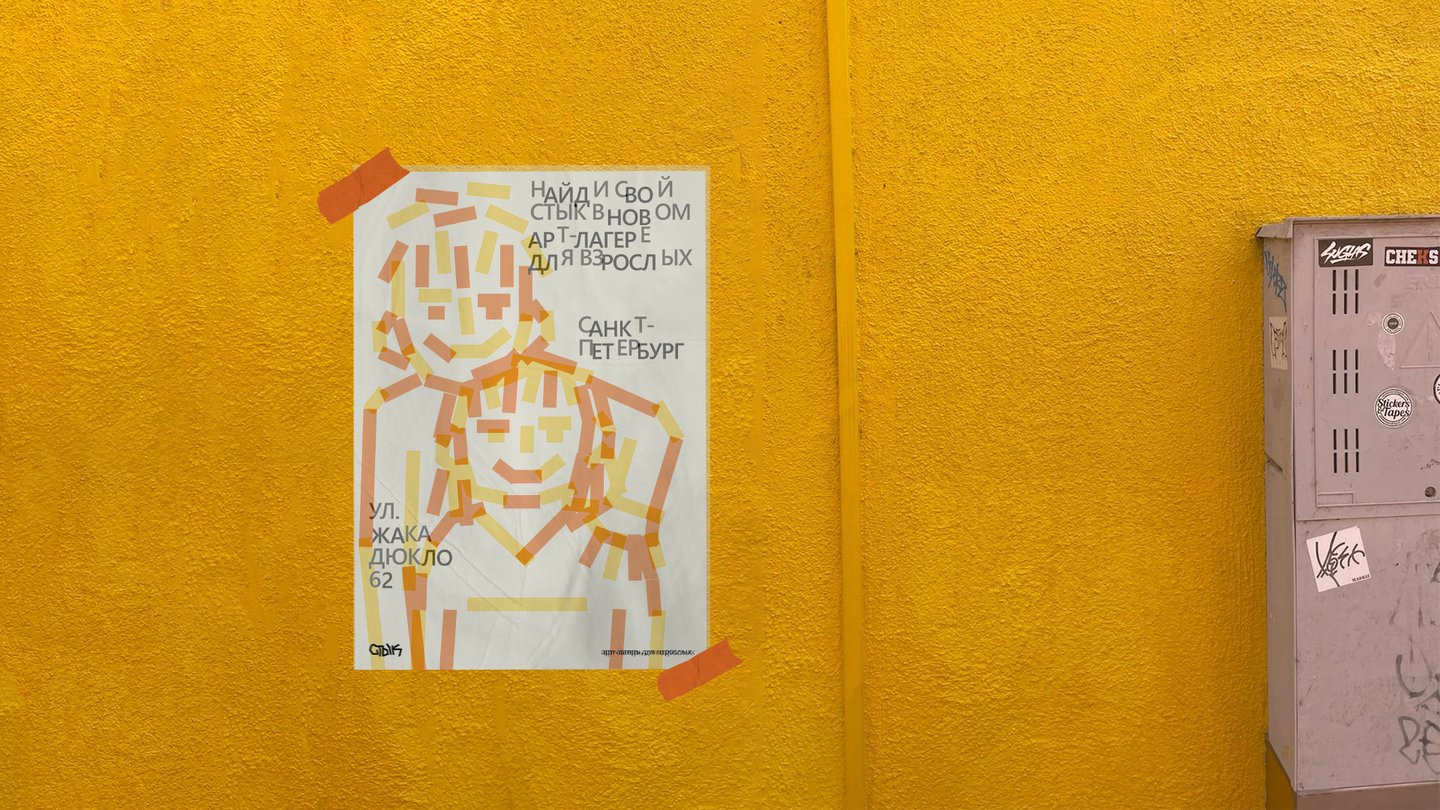 НАЙДИ СВОЙ
СТЫК В НОВОМ
АРТ-ЛАГЕРЕ
ДЛЯ ВЗРОСЛЫХ
САНКТ-
ПЕТЕРБУРГ
УЛ.
ЖАКА
ДЮКЛО
62
СТЫК
арт-лагерь для взрослых
SUGHS
CHEKS
Stickers
&Tapes